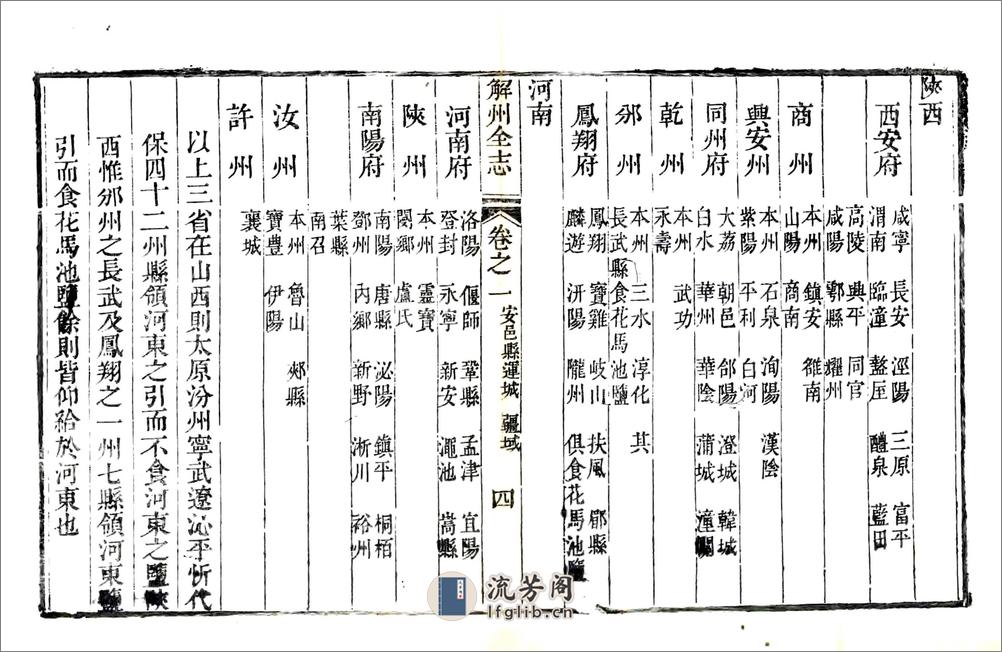 陝西
西安府
咸寧 長安 涇陽 三原 富平
渭南 臨潼 盩厔 醴泉 藍田
高陵 興平 同官
咸陽 鄠縣 耀州
商州
本州 鎮安 雒南
山陽 商南
興安州
本州 石泉 洵陽 漢陰
紫陽 平利 白河
同州府
大荔 朝邑 郃陽 澄城 韓城
白水 華州 華陰 蒲城 潼關
乾州
本州 武功
永壽
邠州
本州 三水 淳化 其
長武縣食花馬池鹽
鳳翔府
鳳翔 寶雞 岐山 扶風 郿縣
麟遊 汧陽 隴州 俱食花馬池鹽
河南
解州全志 卷之一 安邑縣運城 疆域 四
河南府
洛陽 偃師 鞏縣 孟津 宜陽
登封 永寧 新安 澠池 嵩縣
陝州
本州 靈寶
閿鄉 盧氏
南陽府
南陽 唐縣 泌陽 鎮平 桐栢
鄧州 內鄉 新野 淅川 裕州
葉縣
南召
汝州
本州 魯山 郟縣
寶豊 伊陽
許州
襄城
以上三省在山西則太原汾州寧武遼沁平忻代
保四十二州縣領河東之引而不食河東之鹽陝
西惟邠州之長武及鳳翔之一州七縣領河東鹽
引而食花馬池鹽餘則皆仰給於河東也
流芳阁
lfglib.cn